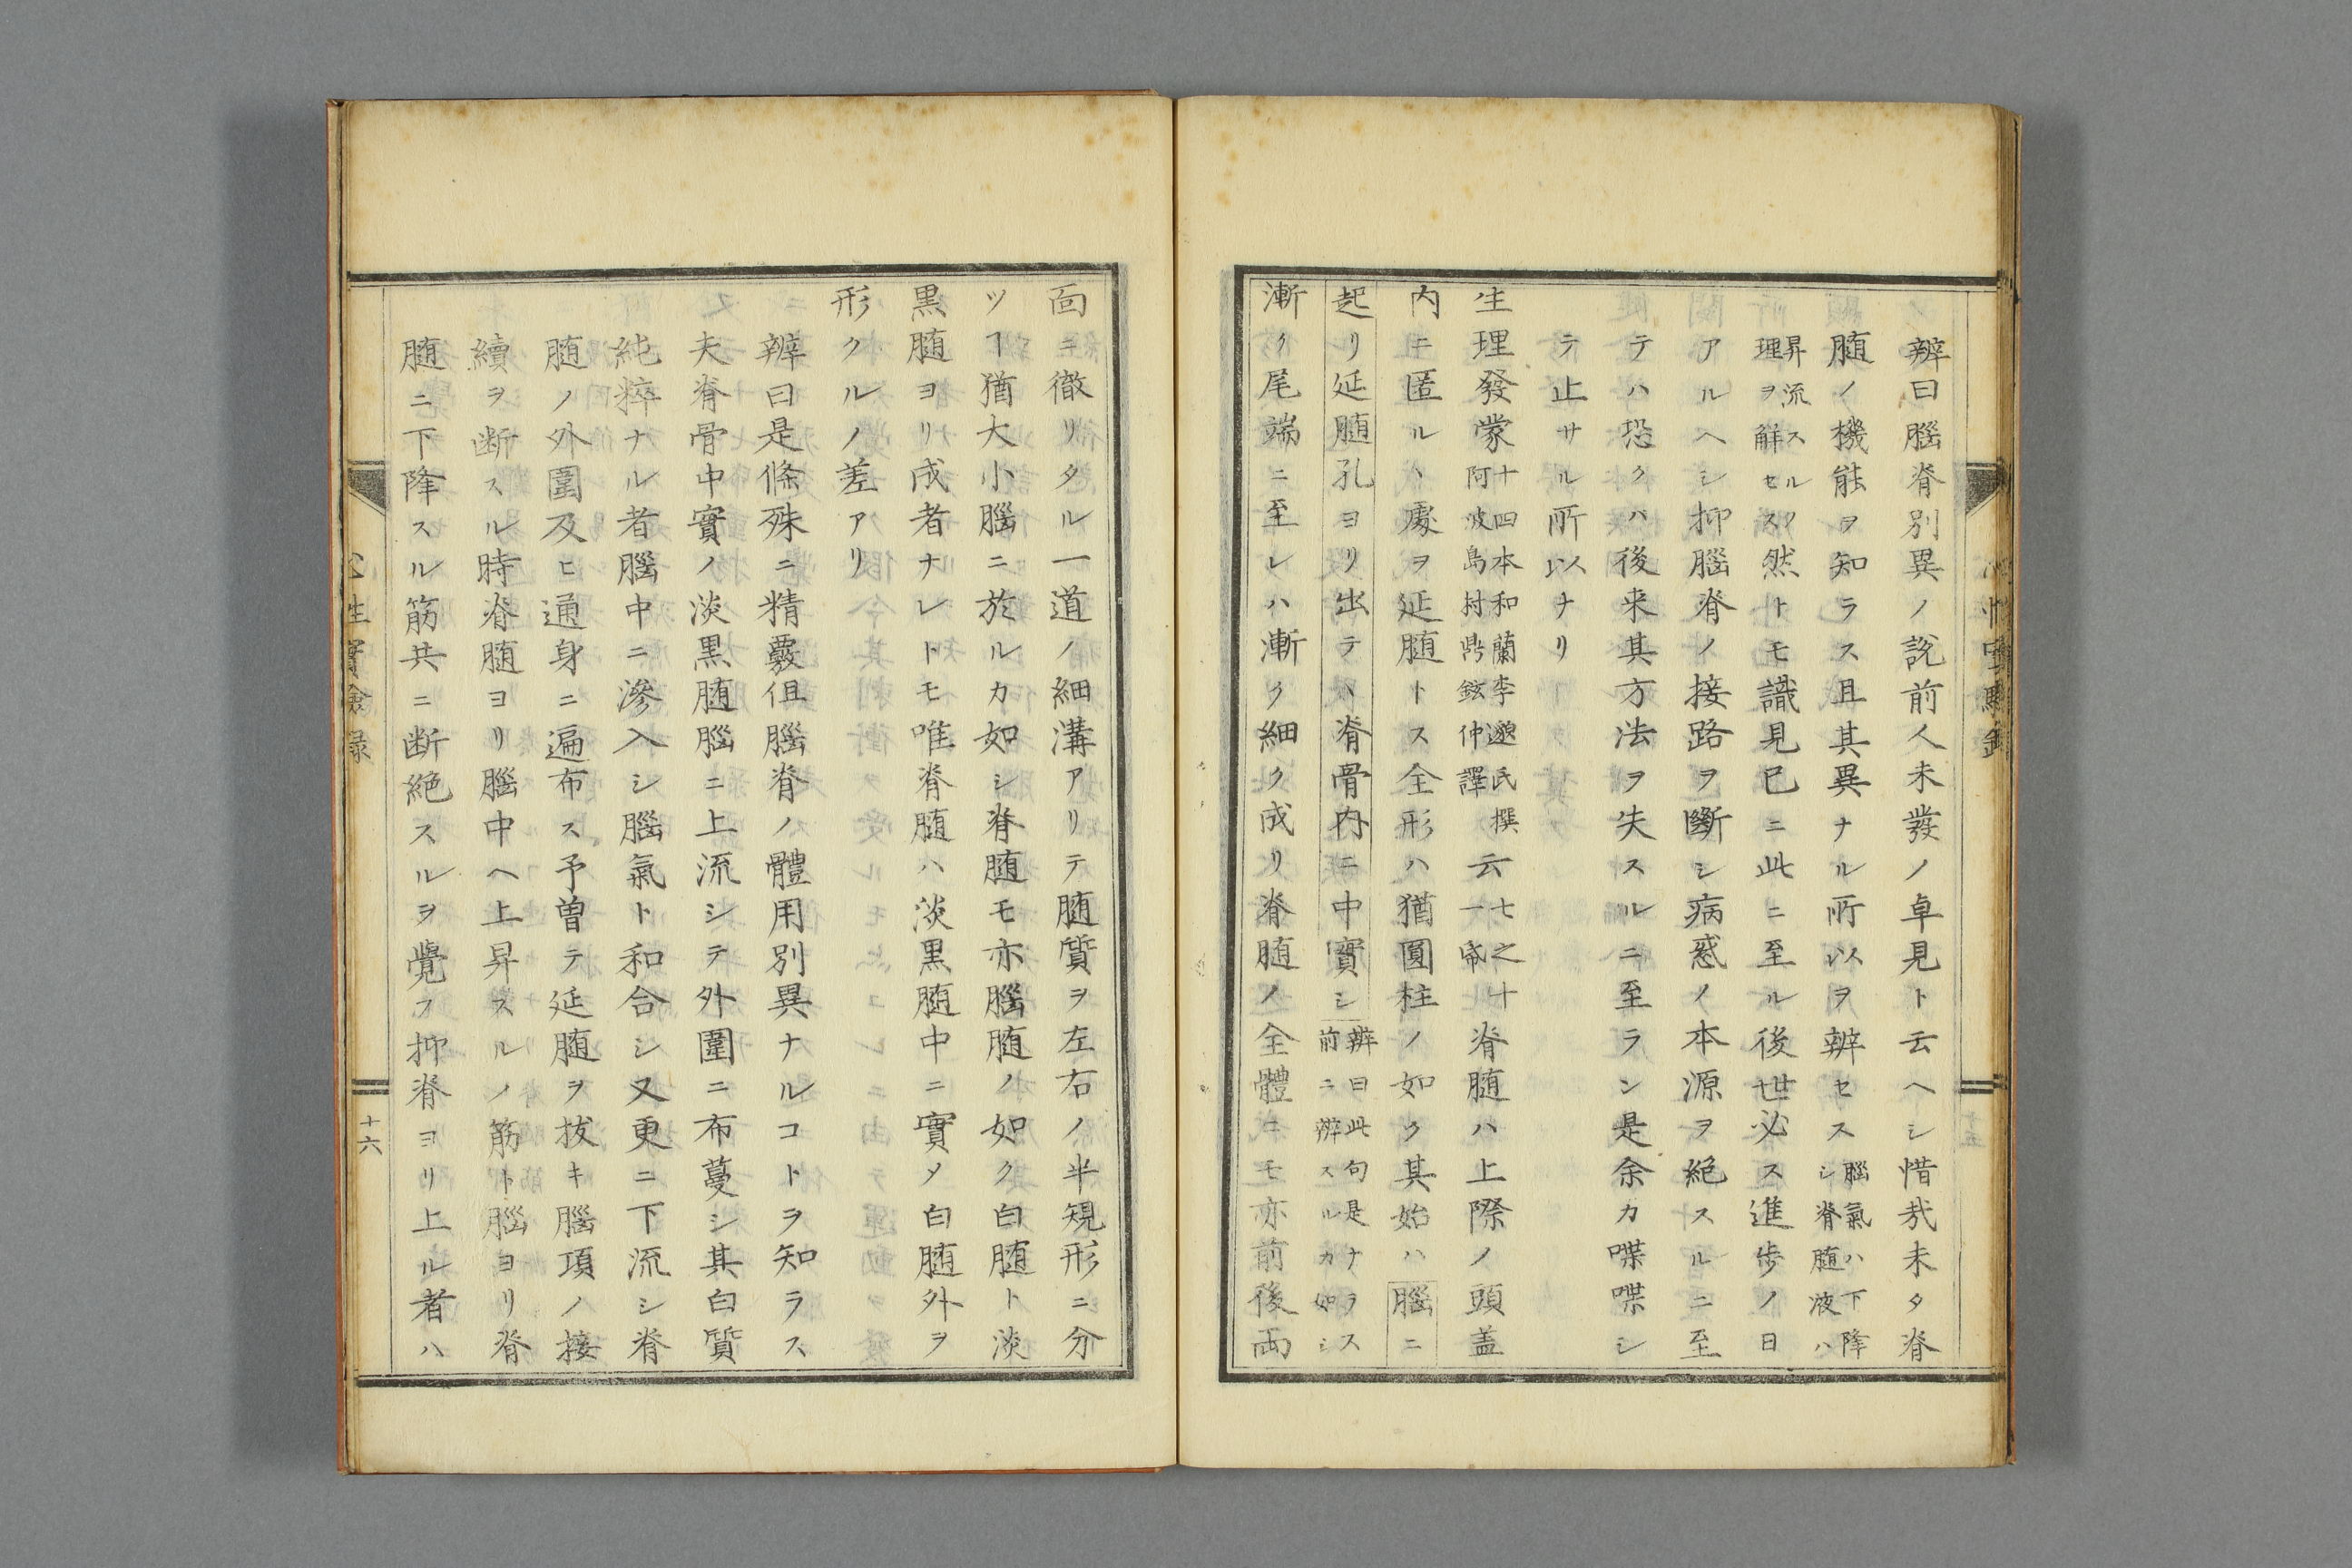 辨曰腦脊別異ノ說前人未發ノ卓見ト云ヘシ惜哉未タ脊
髄ノ機能ヲ知ラス且其異ナル所以ヲ辨セス腦氣ハ下降シ脊髄液ハ
昇流スルノ理ヲ解セス然トモ識見已ニ此ニ至ル後世必ス進步ノ日
アルヘシ抑腦脊ノ接路ヲ斷シ病惑ノ本源ヲ絕スルニ至
テハ恐クハ後来其方法ヲ失スルニ至ラン是余カ喋喋シ
テ止サル所以ナリ
生理發蒙十四本和蘭李邈氏撰阿波島村鼎鉉仲譯云七之十一帋脊髄ハ上際ノ頭盖
内ニ匿ル丶處ヲ延髄トス全形ハ猶圓柱ノ如ク其始ハ腦ニ
起リ延髄孔ヨリ出テハ脊骨内ニ中實シ辨曰此句是ナラス前ニ辨スルカ如シ
漸ク尾端ニ至レハ漸ク細ク成リ脊髄ノ全體ニモ亦前後両
靣ニ徹リタル一道ノ細溝アリテ髄質ヲ左右ノ半規形ニ分
ツヿ猶大小腦ニ於ルカ如シ脊髄モ亦腦髄ノ如ク白髄ト淡
黒髄ヨリ成者ナレトモ唯脊髄ハ淡黒髄中ニ實メ白髄外ヲ
形クルノ差アリ
辨曰是條殊ニ精覈但腦脊ノ體用別異ナルコトヲ知ラス
夫脊骨中實ノ淡黒髄腦ニ上流シテ外圍ニ布蔓シ其白質
純粹ナル者腦中ニ滲入シ腦氣ト和合シ又更ニ下流シ脊
髄ノ外圍及ヒ通身ニ遍布ス予曽テ延髄ヲ抜キ腦項ノ接
續ヲ断スル時脊髄ヨリ腦中ヘ上昇スルノ筋ト腦ヨリ脊
髄ニ下降スル筋共ニ断絕スルヲ覺フ抑脊ヨリ上ル者ハ
心性實驗録
十六